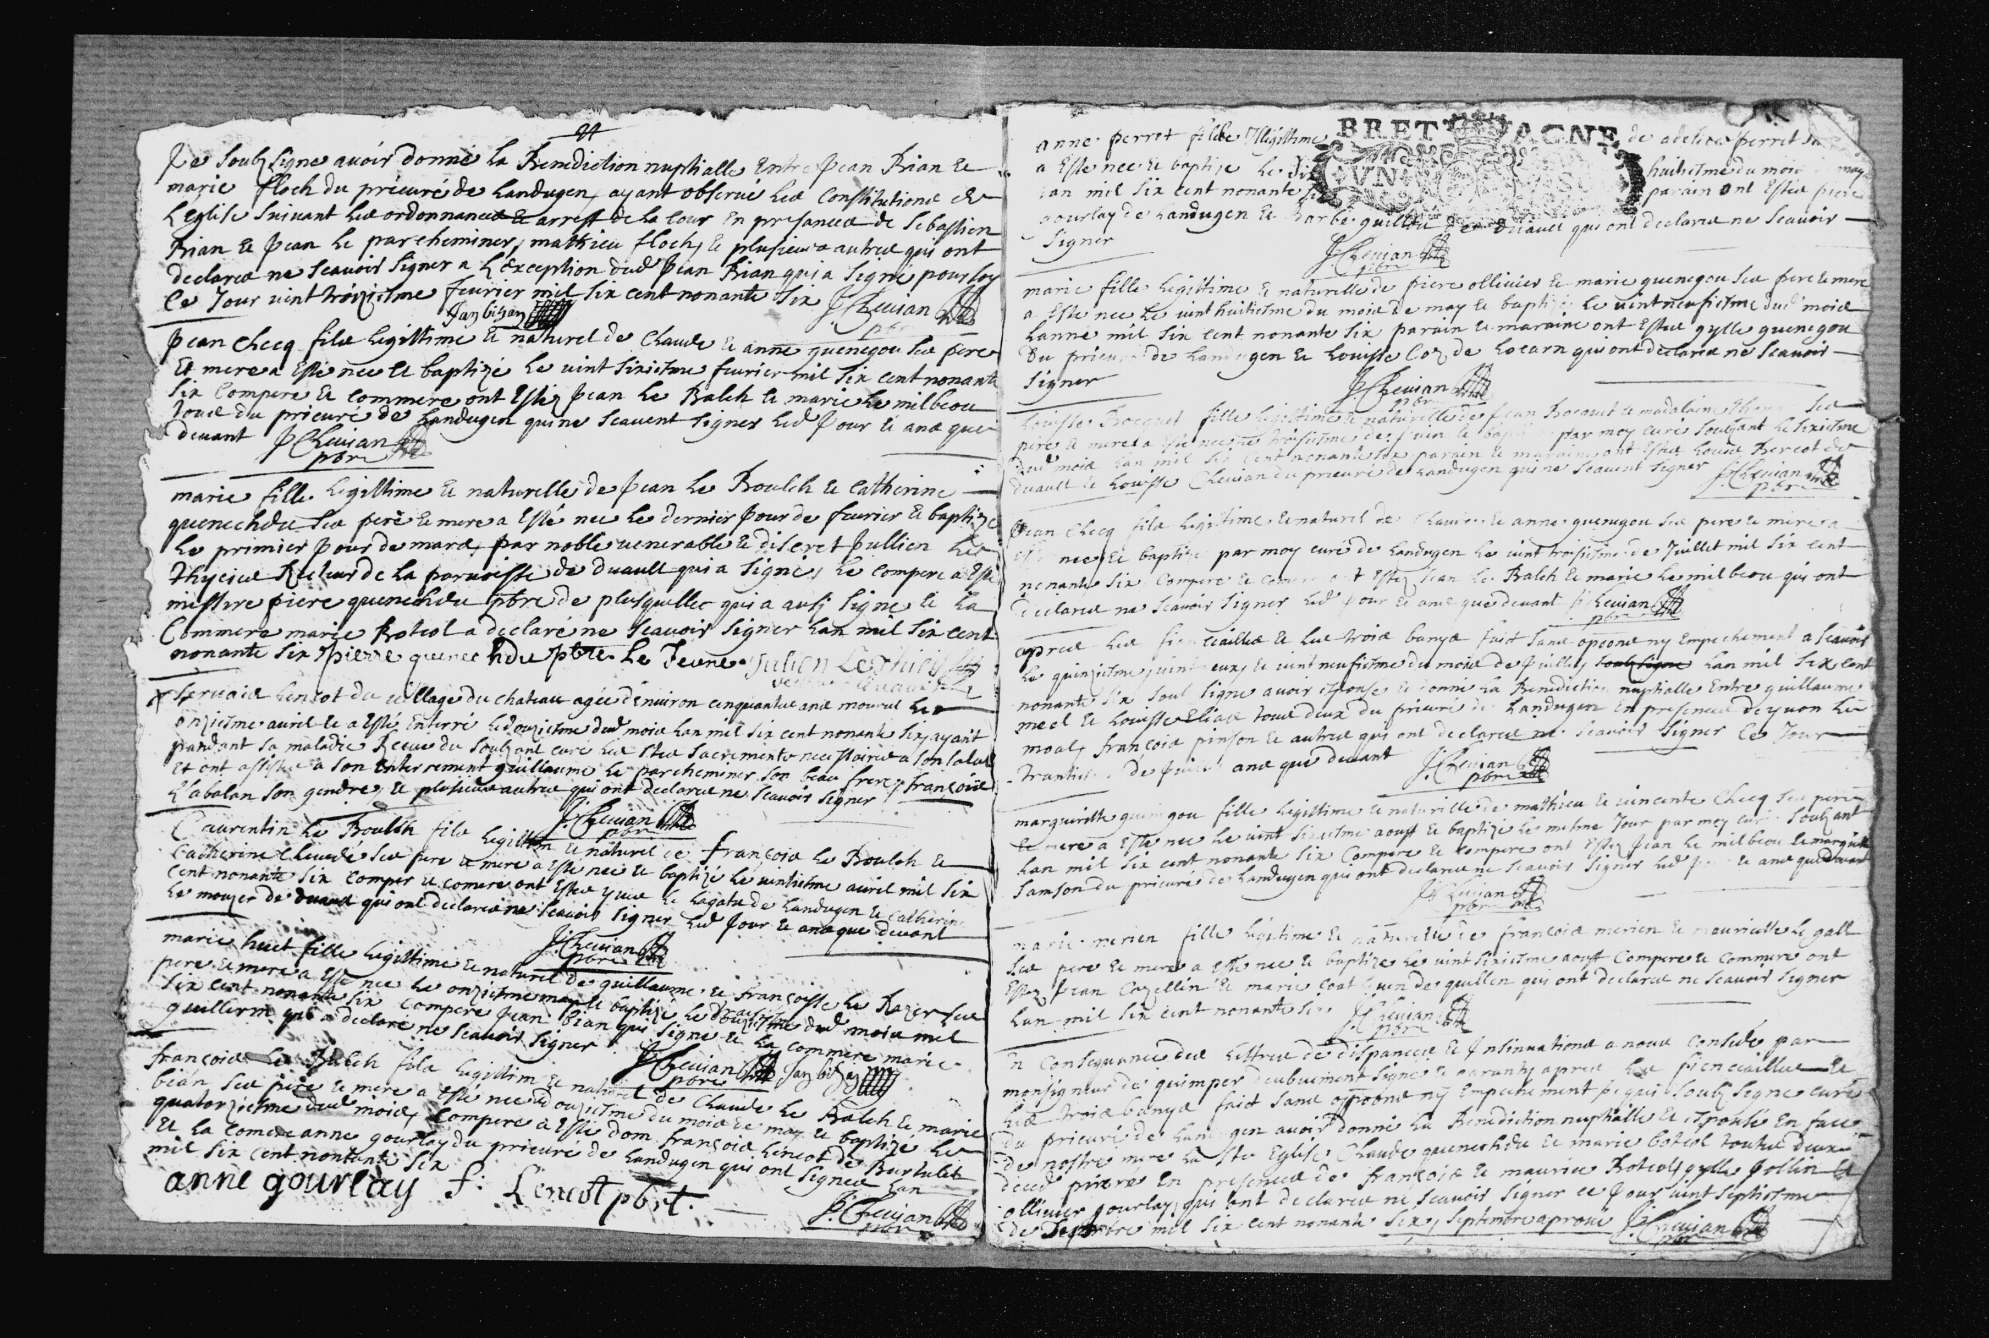 Je Soubz Signe avoir donne La Benediction nuptialle Entre Jean Bian Et
marie floch du prieuré de Landugen, ayant observe Les Constitutions de
L'Eglise Suivant Les ordonnances Et arrest de La Cour En presances de Sebastien
Bian Et Jean Le parcheminer, mathieu floch, Et plusieurs autres qui ont
declarés ne Scavoir Signer a L'Exception dud Jean Bian qui a Signé pour Soy
Ce Jour vint troizieme fevrier mil Six cent nonante Six J: Chevian
Jan bihan pbre
Jean Checq fils Legittime Et naturel de Claude Et anne quenegou Ses pere
Et mere a Esté nee Et baptizé Le vint Sixiesme fevrier mil Six cent nonante
Six Compere Et Commere ont Estez Jean Le Balch Et marie Le milbeou
tous du prieuré de Landugen qui ne Scavent Signer Led Jour Et ans que
devant J: Chevian
pbre
marie fille Legittime Et naturelle de Jean Le Boulch Et Catherine
quenechdu Ses pere Et mere a Esté nee Le dernier Jour de fevrier Et baptize
Le primier Jour de mars, par noble venerable Et discret Jullien Les
thycies Recteur de La parroesse de duault qui a Signé, Le Compere a Esté
missire piere quenechdu pbre de plusquellec qui a ausj Signe Et La
Commere marie Botcol a declaré ne Scavoir Signer Lan mil Six cent
nonante Six pierre quenechdu pbre Le Jeune Julien Le
Servais Lencot du village du chateau agée d'environ cinquantes ans mourut Le
onziesme avril Et a Esté Enterré Le douziesme dud mois Lan mil Six cent nonante Six, ayant
pandant Sa maladie Receue du Soubzsne curé Les Stes Sacrements necessaires a Son Salut
Et ont assistes a Son Enterrement guillaume Le parcheminer Son beau frere, francois
L'abalan Son gendre, Et plusieurs autres qui ont declares ne Scavoir Signer
J: Chevian
pbre
Caurentin Le Boulch fils Legittim Et naturel de francois Le Boulch Et
Catherine Ses pere Et mere a Esté nee Et baptizé Le vintiesme avril mil Six
Cent nonante Six Comper Et comere ont Estes yves Le Lagatu de Landugen Et Catherin
Le mouzer de duault qui ont declares ne Scavoir Signer Led Jour Et ans que devant
J: Chevian
pbre
marie huet fille Legittime Et naturel de guillaume Et francoisse Le Razer Ses
pere Et mere a Esté nee Le onziesme may Et baptizé Le douziesme dud mois mil
Six cent nonante Six Compere Jean Bian qui Signe Et La Commere marie
guillerm qui a declare ne Scavoir Signer J: Chevian Jan bihan
pbre
francois Le Balch fils Legittim Et naturel de Claude Le Balch Et marie
bian Ses pere Et mere a Esté nee Le douziesme du mois de may Et baptizé Le
quatorziesme dud mois, Compere a Esté dom francois Lencot de Burtulet
Et La Comere anne gourlay du prieure de Landugen qui ont Signes Lan
mil Six cent nontante Six
anne gourlay f: Lencot pbrt.
J: Chevian
pbre
BRETAGNE
anne perret fille Illegittime de perret
a Este nee Et baptize Le huitiesme du mois may
Lan mil Six Cent nonante parain ont Estes piere
gourlay de Landugen Et barbe guillou de duault qui ont declares ne Scavoir
Signer
J: Chevian
pbre
marie fille Legittime Et naturelle de piere ollivier Et marie quenegou Ses pere Et mere
a Este nee Le vint huitiesme du mois de may Et baptizé Le vint neufiesme dud mois
Lanne mil Six cent nonante Six parain Et maraine ont Estes gylle quenegou
du prieure de Landugen Et Louisse Coz de Locarn qui ont declares ne Scavoir
Signer
J: Chevian
pbre
Louisse Bocquet fille Legittime Et naturelle de Jean Bocquet Et madalaine Ses
pere Et mere a Este nee Le troisiesme de Juin Et baptizé par moy curé Soubzsnt Le Sixiesme
dud mois Lan mil Six Cent nonante Six parain Et maraine ont Estes Louis Bercot de
duault Et Louisse Chevian du prieuré de Landugen qui ne Scavent Signer J: Chevian
pbre
Jean Checq fils Legittime Et naturel de Claude Et anne quenegou Ses pere Et mere a
Esté nee Et baptizé par moy curé de Landugen Le vint troisiesme de Juillet mil Six cent
nonante Six Compere Et Comere ont Estez Jean Le Balch Et marie Le milbeou qui ont
declares ne Scavoir Signer Led Jour Et ans que devant J: Chevian
pbre
apres Les fienciailles Et Les trois banys faict Sans opozne ny Empechement a Scavoir
Le quinziesme, vint deux, Et vint neufiesme du mois de Juillet, Soubz Signe Lan mil Six cent
nonante Six Soub Signe avoir Espouse Et donné La Benediction nuptialle Entre guillaume
meel Et Louisse Elias tous deux du prieuré de Landugen En presence de yvon Le
moal, francois pinson Et autres qui ont declares ne Scavoir Signer Ce Jour
Trantiesme de Juillet ans que devant J: Chevian
pbre
marguerite quenegou fille Legittime Et naturelle de mathieu Et vincente Checq Ses pere
Et mere a Este nee Le vint Sixiesme aoust Et baptizé Le mesme Jour par moy curé Soubzsnt
Lan mil Six cent nonante Six Compere Et Comere ont Estez Jean Le milbeou Et marguerite
Samson du prieuré de Landugen qui ont declares ne Scavoir Signer Led Jour Et ans que devant
J: Chevian
pbre
marie merien fille Legitime Et naturelle de francois merien Et mauricette Le gall
Ses pere Et mere a Esté nee Et baptizé Le vint Sixiesme aoust Compere Et Commere ont
Estez Jean Cazellin Et marie Coatguen de quillen qui ont declares ne Scavoir Signer
Lan mil Six cent nonante Six J: Chevian
pbre
En Consequance des Lettres de dispances Et Insinuations a nous Consede par
monsigneur de quimper deubuement Signe Et garanty apres Les fienciailles Et
Les trois banys faict Sans opozne ny Empechement Je qui Soubz Signe curé
du prieuré de Landugen avoir donné La Benediction nuptialle Et Espousé En face
de nostre mere La Ste Eglise Claude quenechdu Et marie botcol toutes deux
dud prieuré En presences de francois Et maurice Botcol, gylle Jollin Et
ollivier gourlay, qui ont declares ne Scavoir Signer ce Jour vint Septiesme
de Septembre mil Six cent nonante Six, Septembre aprouvé J: Chevian
pbre